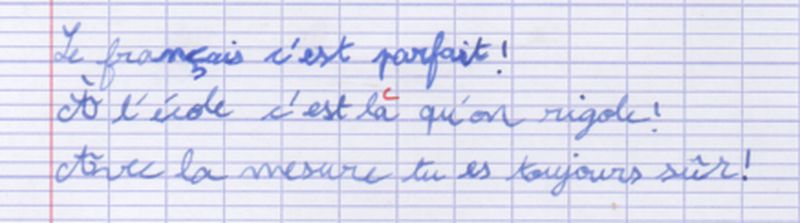 Le français c'est parfait !
À l'école c'est là qu'on rigole !
Avec la mesure tu es toujours sûr !